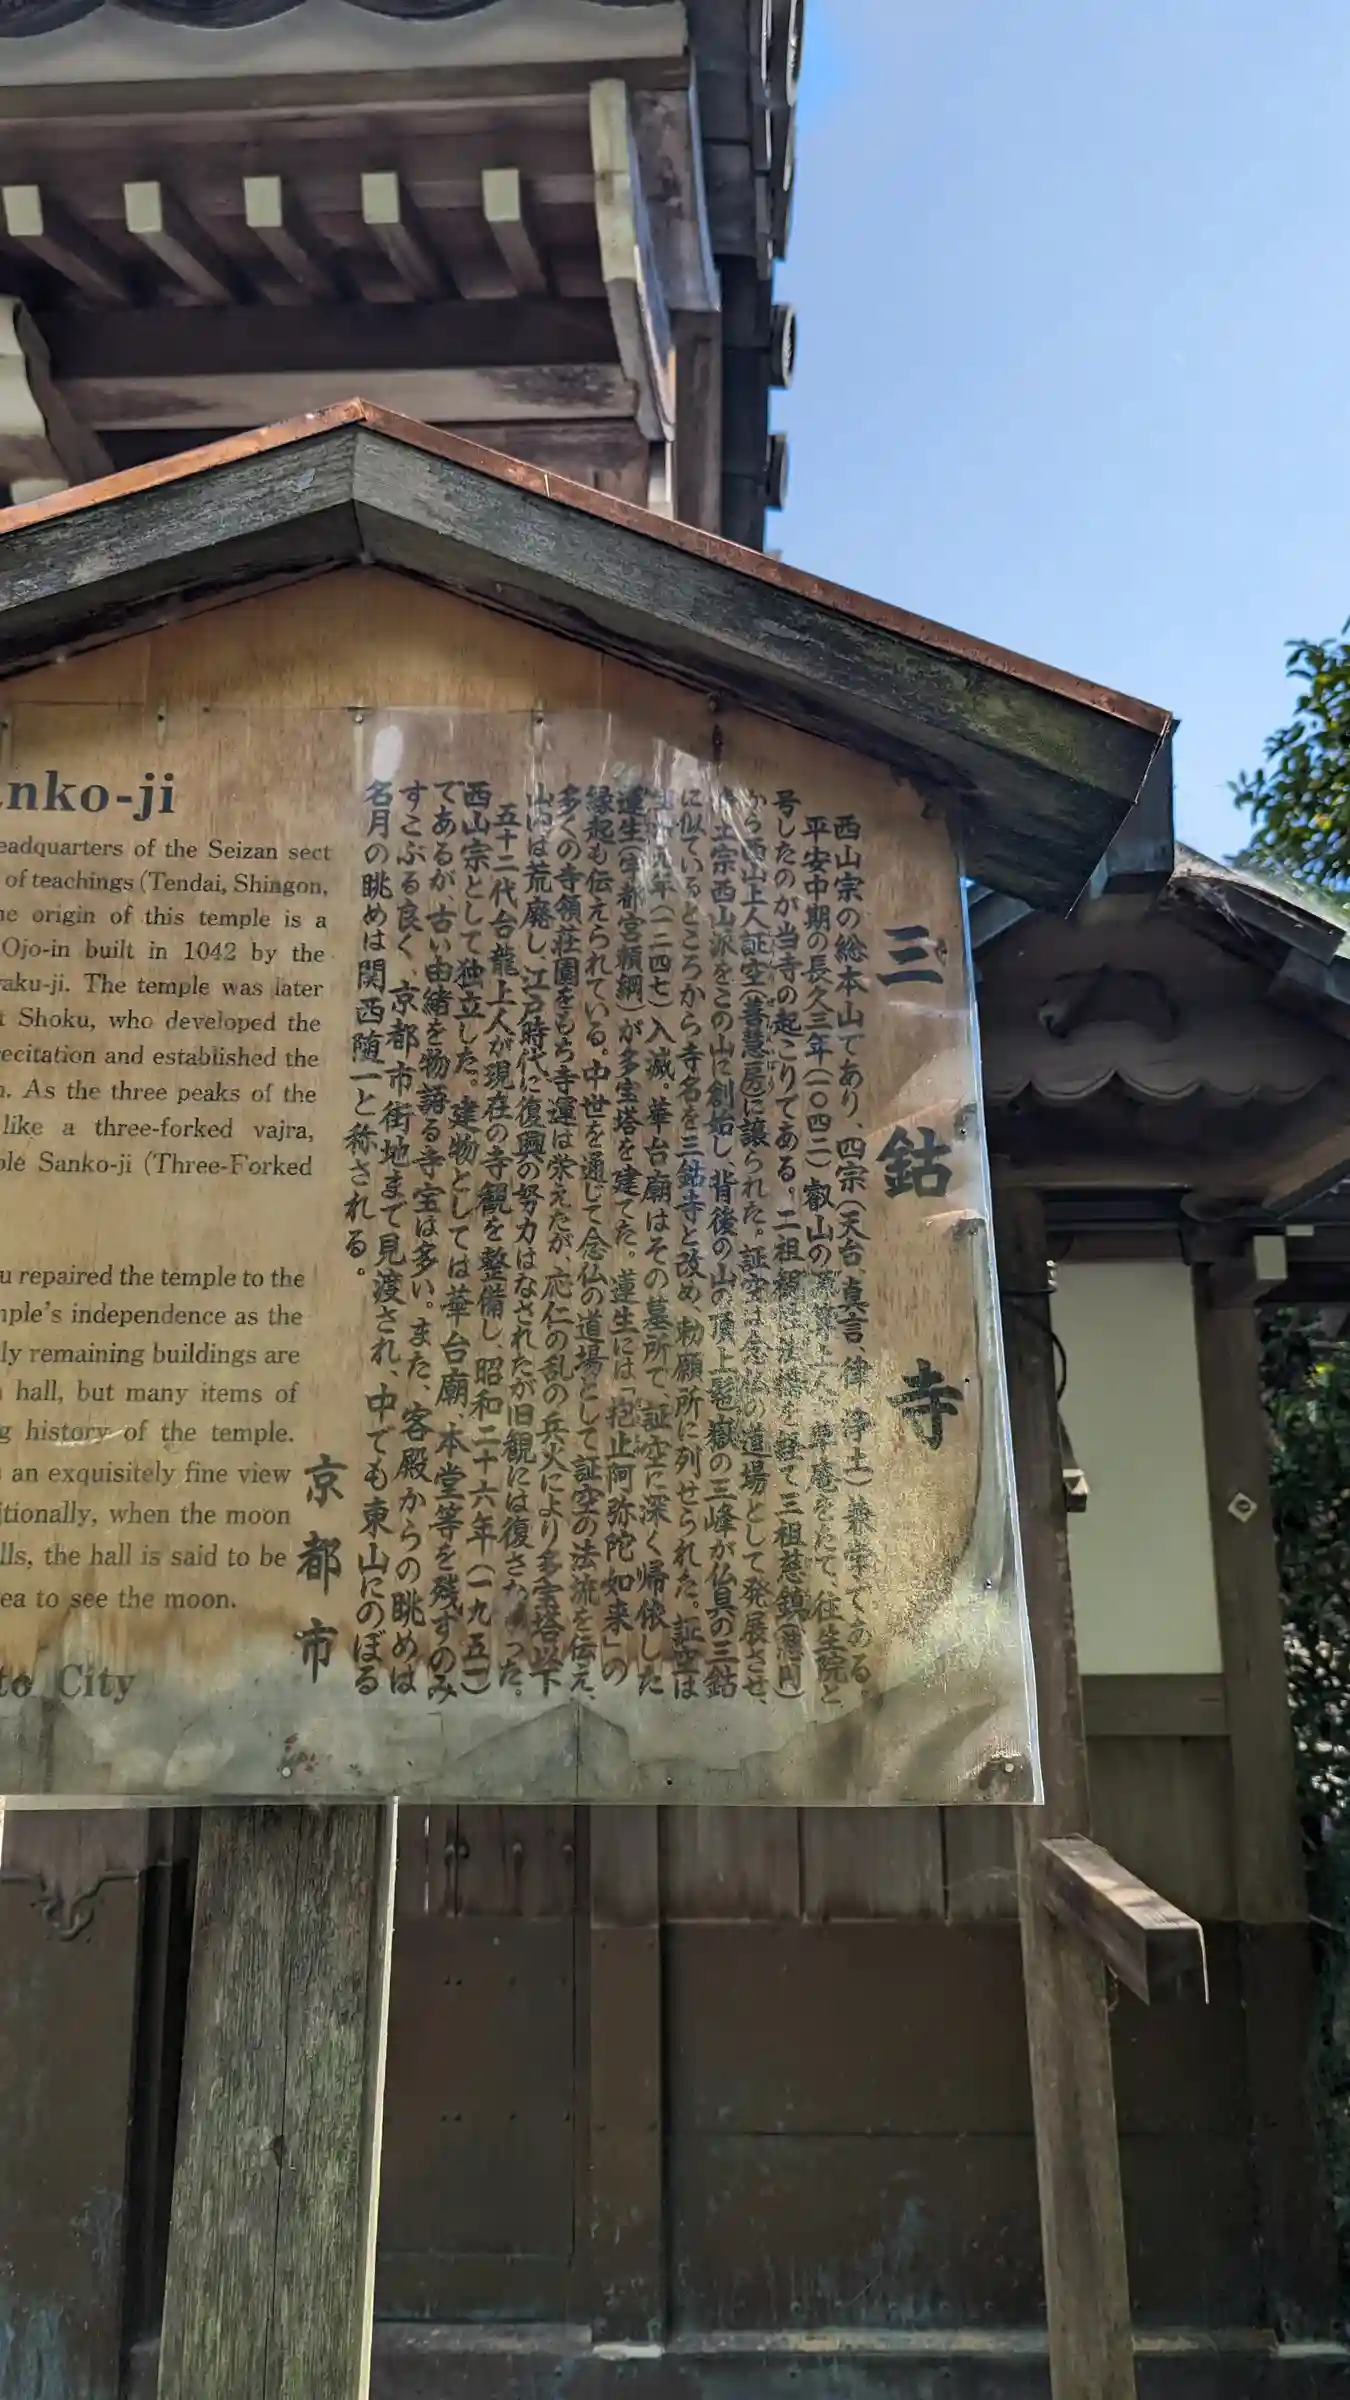 三鈷寺
西山宗の総本山であり、四宗(天台、真言、律、浄土)兼学である。
平安中期の長久三年(一〇四二)叡山の源算上人が草庵をたて、往生院と
号したのが当寺の起こりである。二祖観性法橋を経て三祖慈鎮(慈円)
から西山上人証空(善慧房)に譲られた。証空は念仏の道場として発展させ、
浄土宗西山派をこの山に創始し、背後の山の頂上 嶽の三峰が仏具の三鈷
に似ているところから寺名を三鈷寺と改め、勅願所に列せられた。証空は
年(一二四七)入滅。華台廟はその墓所で、証空に深く帰依した
蓮生(宇都宮頼綱)が多宝塔を建てた。蓮生には「抱止阿弥陀如来」の
縁起も伝えられている。中世を通じて念仏の道場として証空の法流を伝え、
多くの寺領荘園をもち寺運は栄えたが、応仁の乱の兵火により多宝塔以下
山内は荒廃し、江戸時代に復興の努力はなされたが旧観には復さなかった。
五十二代台龍上人が現在の寺観を整備し、昭和二十六年(一九五一)
西山宗として独立した。建物としては華台廟、本堂等を残すのみ
であるが、古い由緒を物語る寺宝は多い。また、客殿からの眺めは
すこぶる良く、京都市街地まで見渡され、中でも東山にのぼる
名月の眺めは関西随一と称される。
京都市
nko-ji
eadquarters of the Seizan sect
of teachings (Tendai, Shingon,
he origin of this temple is a
Ojo-in built in 1042 by the
aku-ji. The temple was later
t Shoku, who developed the
recitation and established the
. As the three peaks of the
like a three-forked vajra,
ple Sanko-ji (Three-Forked
u repaired the temple to the
mple's independence as the
ly remaining buildings are
hall, but many items of
g history of the temple.
an exquisitely fine view
itionally, when the moon
lls, the hall is said to be
ea to see the moon.
to City